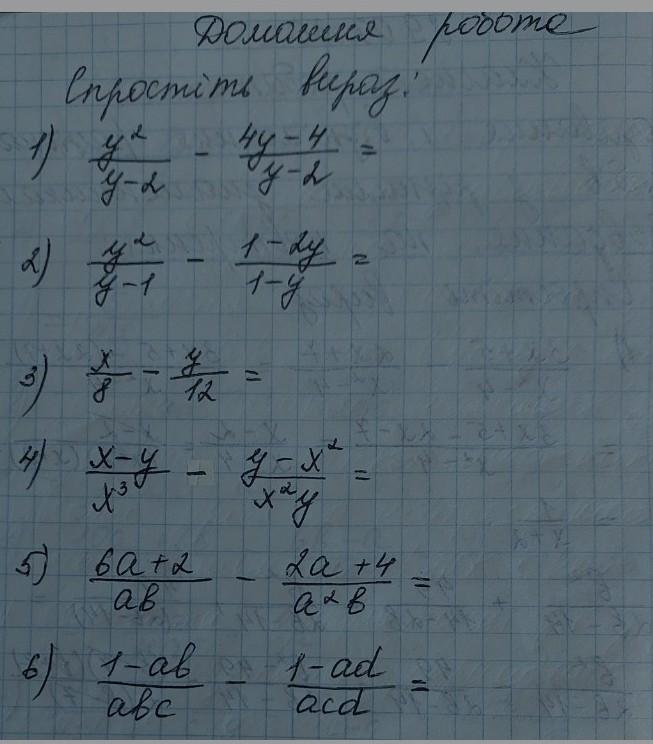 Домашня робота
Спростіть вираз:
1) y²/(y-2) - (4y-4)/(y-2) =
2) y²/(y-1) - (1-2y)/(1-y) =
3) x/8 - y/12 =
4) (x-y)/x³ - (y-x²)/(x²y) =
5) (6a+2)/(ab) - (2a+4)/(a²b) =
6) (1-ab)/(abc) - (1-ad)/(acd) =